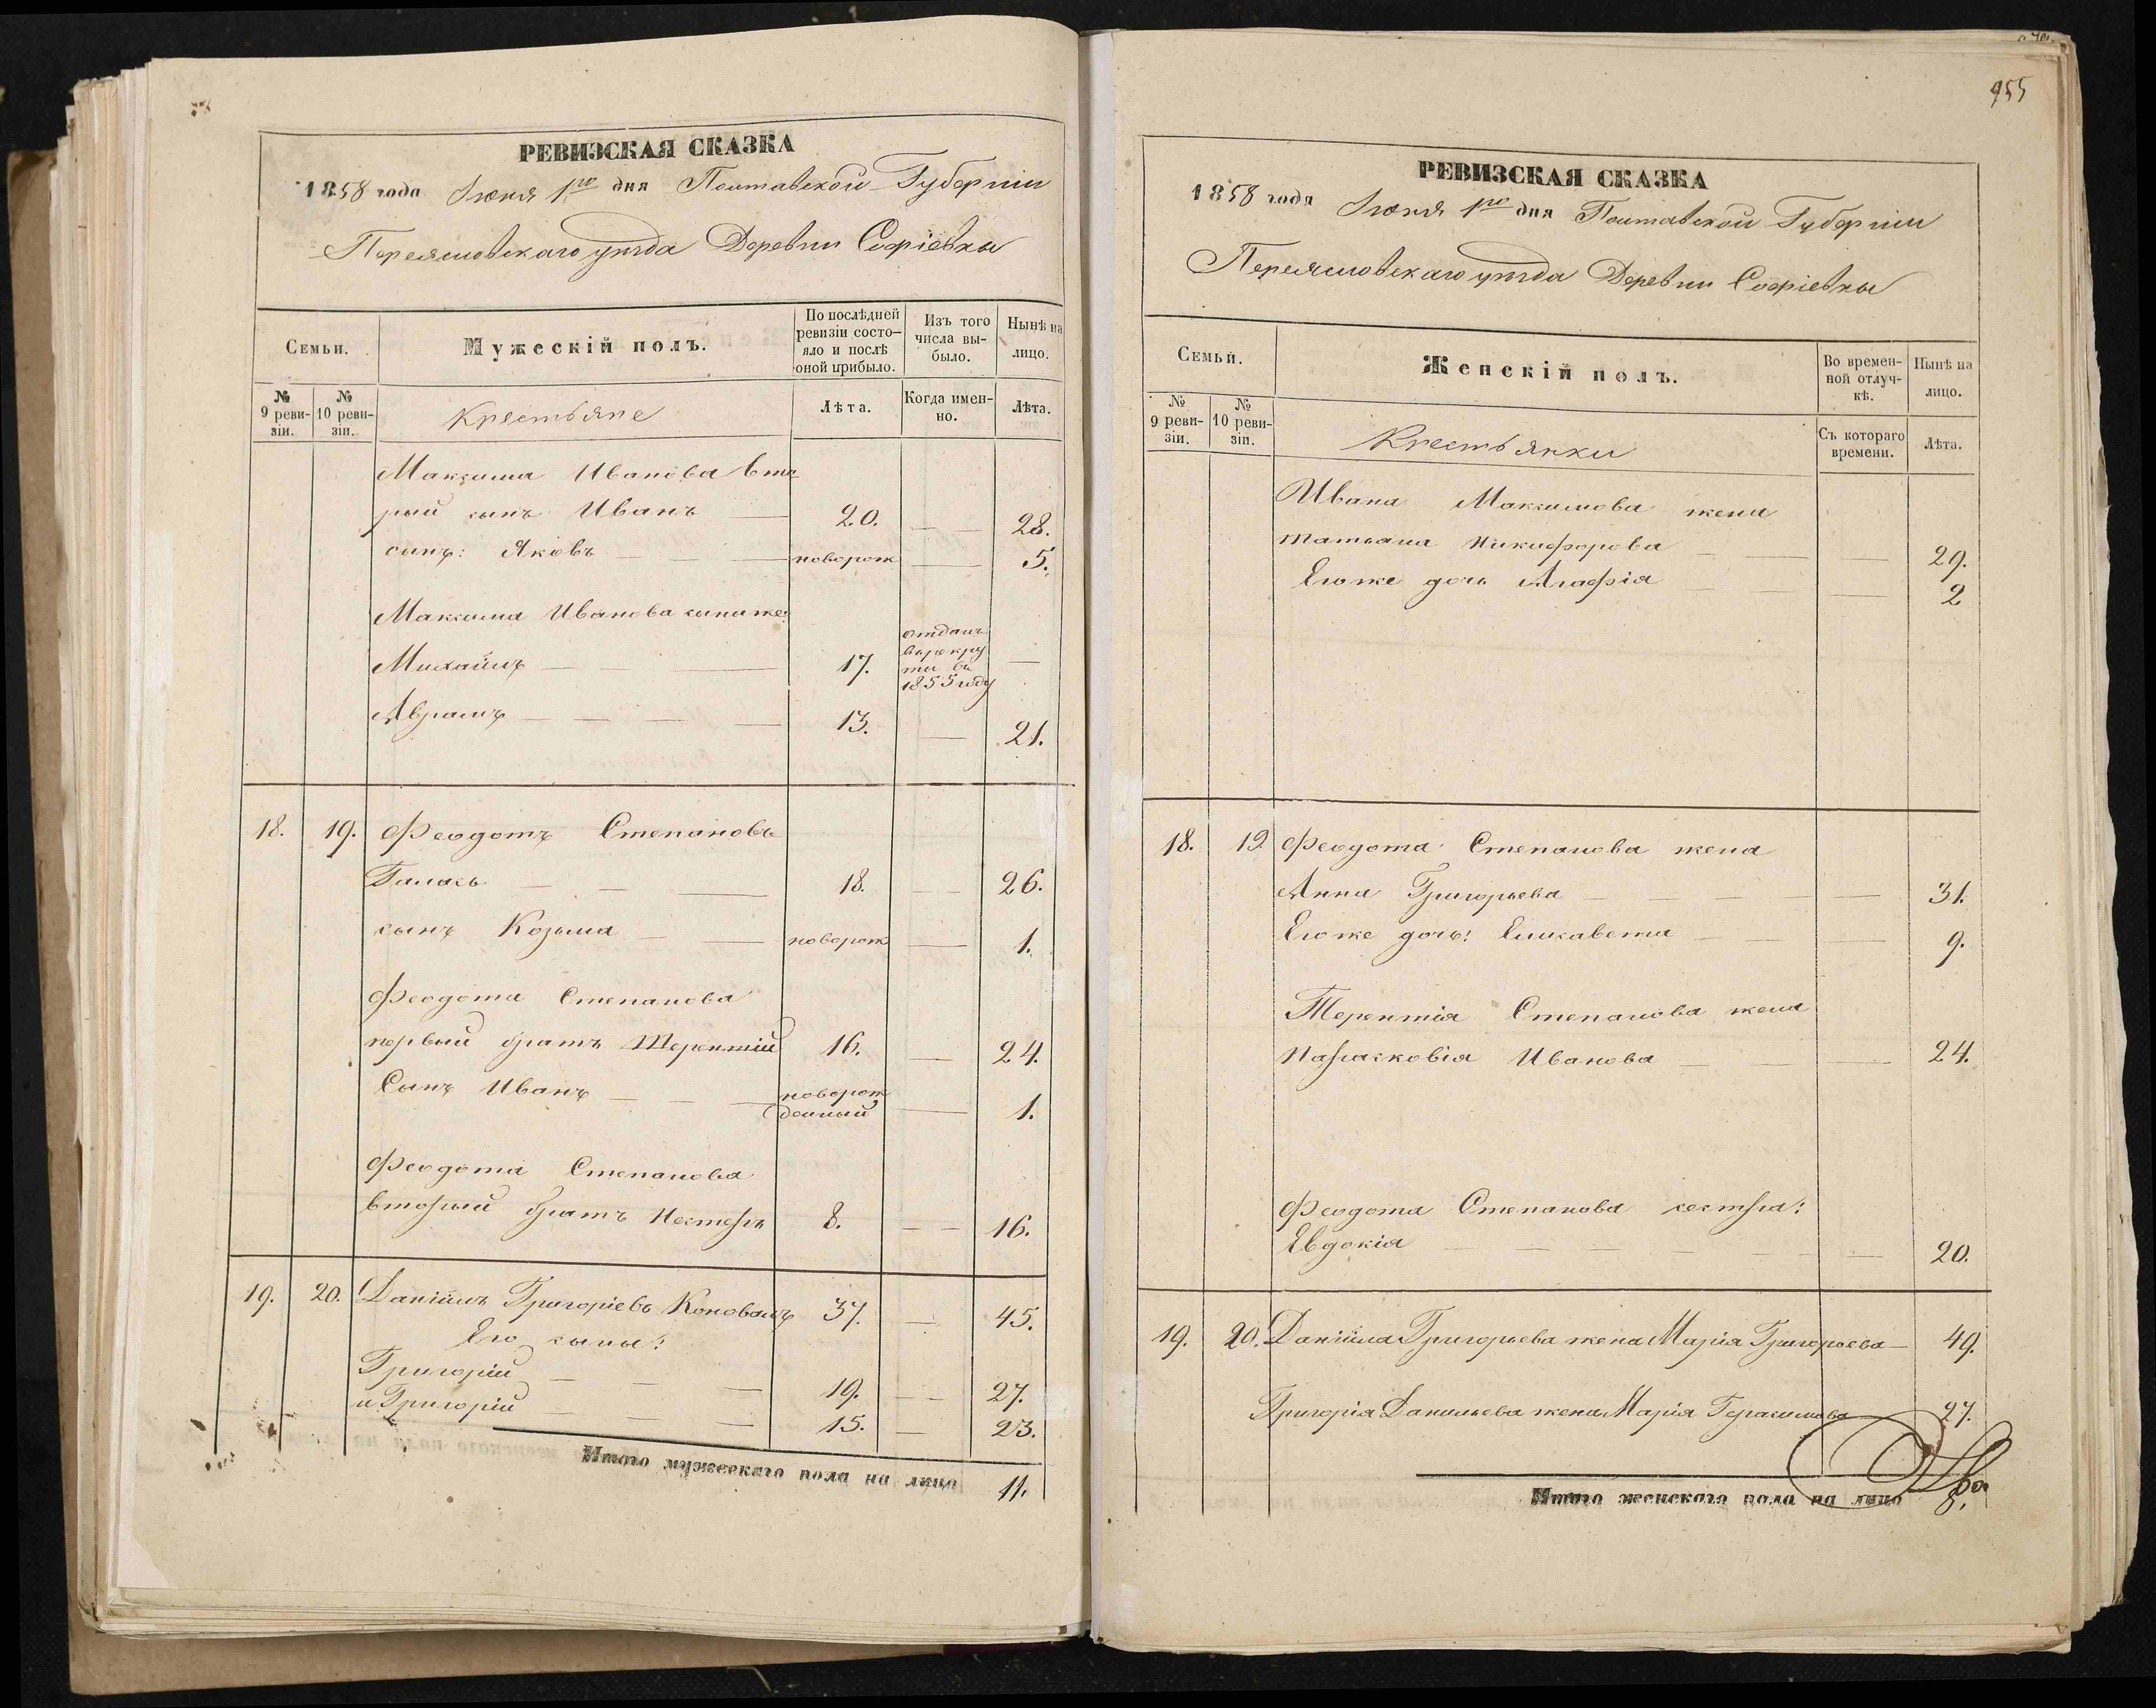 РЕВИЗСКАЯ СКАЗКА
1858 года Июня 1го дня Полтавской Губерніи
Переяславскаго уѣзда Деревни Софіевки
Семьи.
Мужескій полъ.
По послѣдней ревизіи состо-
яло и послѣ оной прибыло.
Изъ того числа вы-
было.
Нынѣ на лицо.
№ 9 реви-
зіи.
№ 10 реви-
зіи.
Крестьяне
Лѣта.
Когда имен-
но.
Лѣта.
Максима Иванова вто
рый сынъ Иванъ 20. 28.
сынъ: Яковъ новорож 5.
Максима Иванова сыны же:
Михаилъ 17. отданъ
в рекру
ты въ
1855 году
Аврамъ 13. 21.
18. 19. Феодотъ Степановъ
Галась 18. 26.
сынъ Козьма новорож 1.
Феодота Степанова
первый братъ Терентій 16. 24.
Сынъ Иванъ новорож
денный 1.
Феодота Степанова
вторый братъ Нестеръ 8. 16.
19. 20. Даніилъ Григоріевъ Коновалъ 37. 45.
Его сыны:
Григорій 19. 27.
и Григорій 15. 23.
Итого мужескаго пола на лицо 11.
955
РЕВИЗСКАЯ СКАЗКА
1858 года Июня 1го дня Полтавской Губерніи
Переяславскаго уѣзда Деревни Софіевки
Семьи.
Женскій полъ.
Во времен-
ной отлуч-
кѣ.
Нынѣ на лицо.
№ 9 реви-
зіи.
№ 10 реви-
зіи.
Крестьянки
Съ котораго времени.
Лѣта.
Ивана Максимова жена
татьяна Никифорова 29.
Его же дочь Агафія 2
18. 19. Феодота Степанова жена
Анна Григорьева 31.
Его же дочь: Елисавета 9.
Терентія Степанова жена
Парасковія Иванова 24.
Феодота Степанова сестра:
Евдокія 20.
19. 20. Даніила Григорьева жена Марія Григорьева 49.
Григорія Данильева жена Марія Герасимова 27.
Итого женскаго пола на лицо 8.